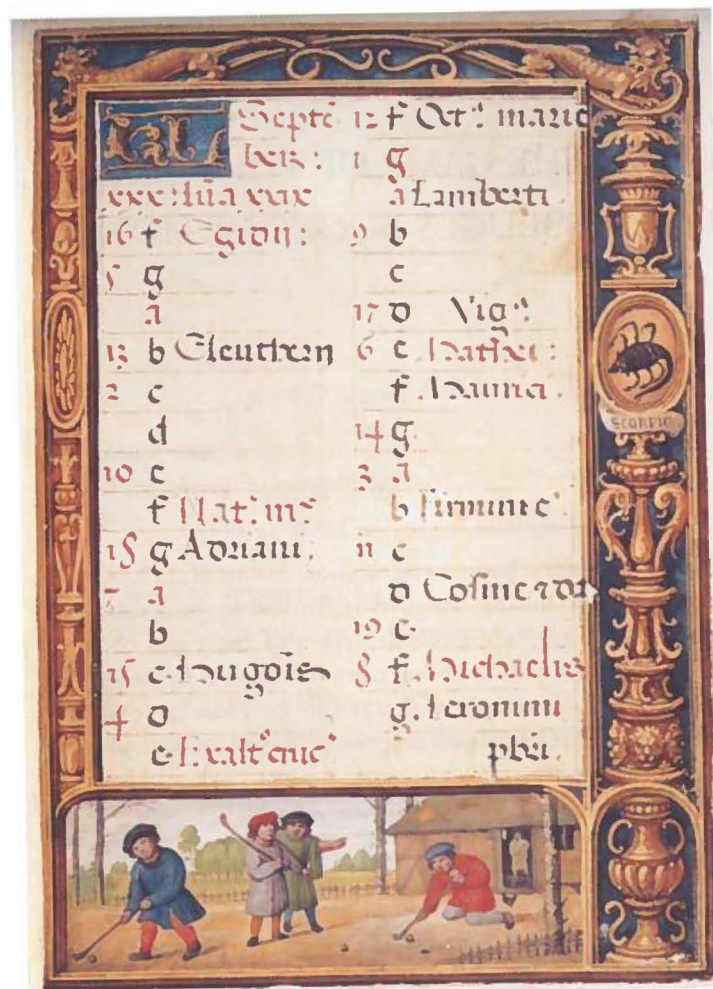 KL Septẽ
ber:
xxx: lũa xxix
16 f Egidij:
5 g
a
13 b Eleutherij
2 c
d
10 e
f Nat. m
18 g Adriani.
7 a
b
15 c
4 d
e Exalt crucꝭ
12 f Oct. marie
1 g
a Lamberti.
9 b
c
17 d Vigᵃ:
6 e Mathei:
f Mauricii.
14 g
3 a
b firmini e
11 c
d Cosme ⁊ da
19 e
8 f Michaelis
g Ieronimi
pbri.
SCORPIO